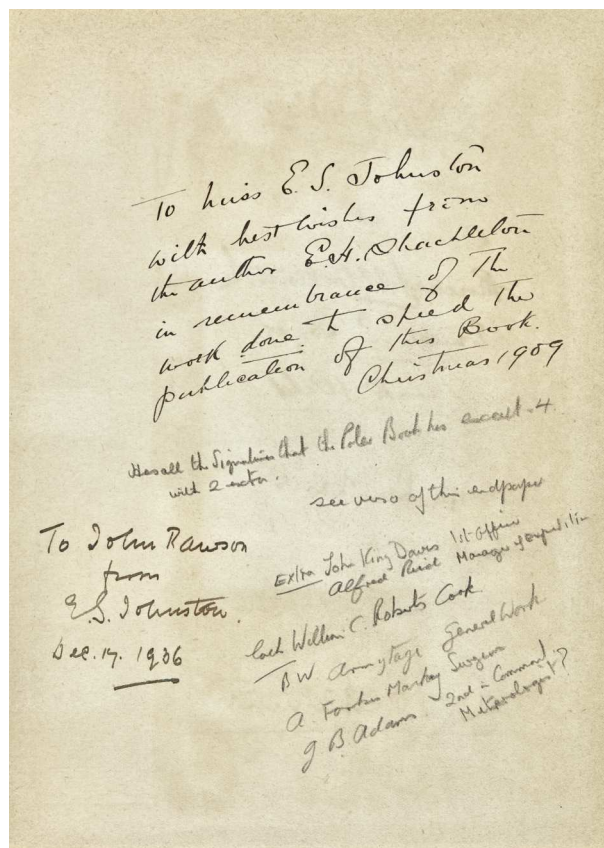 To Miss E. S. Johnston
with best wishes from
the author E.H. Shackleton
in remembrance of the
work done to speed the
publication of this Book.
Christmas 1909
Has all the Signatures that the Polar Book has except 4
with 2 extra.
see verso of this endpaper
To John Rawson
from
E.S. Johnston.
Dec. 17. 1936
Extra John King Davis 1st Officer
Alfred Reid Manager of expedition
lack William C. Roberts Cook
B W Armytage General Work
A. Forbes Mackay Surgeon
J B. Adams 2nd in Command
Meteorologist?